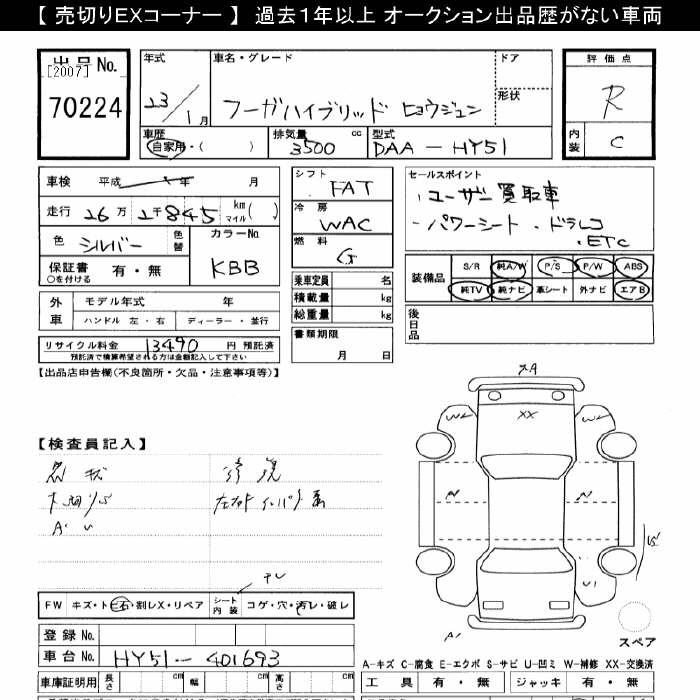 【 売切りEXコーナー 】 過去1年以上 オークション出品歴がない車両
出品 No.
[2007]
70224
年式
23/1月
車名・グレード
フーガハイブリッド ヒョウジュン
ドア
形状
評価点
R
内装 C
車歴
自家用・( )
排気量 cc
3500
型式
DAA-HY51
車検 平成 年 月
走行 26万2千845 km マイル( )
色 シルバー 色替
カラーNo. KBB
保証書 有・無
○を付ける
外車 モデル年式 年
ハンドル 左・右 ディーラー・並行
リサイクル料金 13490 円 預託済
預託済で積算希望される方は金額記入して下さい
シフト FAT
冷房 WAC
燃料 G
乗車定員 名
積載量 kg
総重量 kg
書類期限
月 日
セールスポイント
・ユーザー買取車
・パワーシート ・ドラレコ
・ETC
装備品 S/R 純A/W P/S P/W ABS
純TV 純ナビ 革シート 外ナビ エアB
後日品
【出品店申告欄(不良箇所・欠品・注意事項等)】
【検査員記入】
XA
XX
W2 W2
A1 A1
U1
A1
FW キズ・ト ビ石・割レX・リペア シート内装 コゲ・穴・汚レ・破レ
登録 No.
車台 No. HY51-401693
スペア
A-キズ C-腐食 E-エクボ S-サビ U-凹ミ W-補修 XX-交換済
車庫証明用 長さ cm 幅 cm 高さ cm
工具 有・無 ジャッキ 有・無